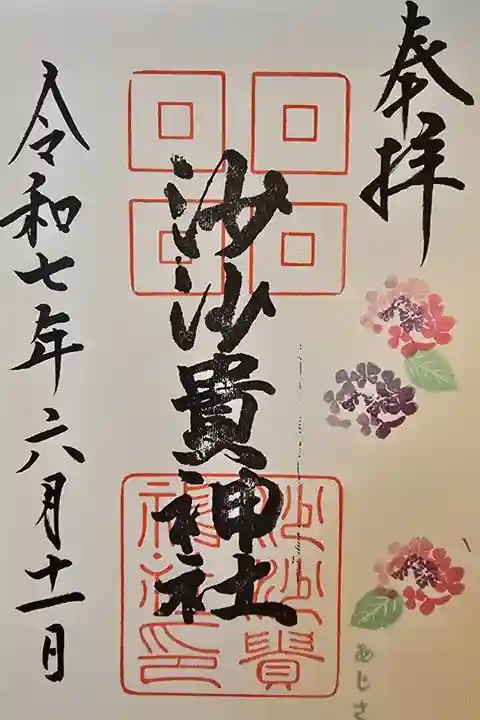 奉拝
沙沙貴神社
沙沙貴
神社印
令和七年六月十一日
あじさ